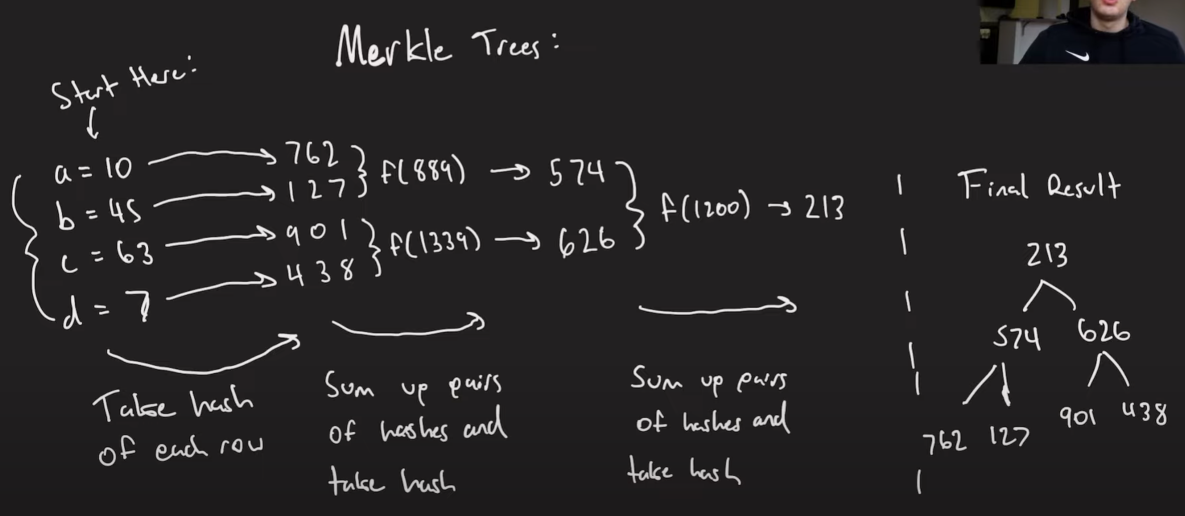 Merkle Trees:
Start Here:
a = 10 → 762
b = 45 → 127
c = 63 → 901
d = 7 → 438
f(889) → 574
f(1339) → 626
f(1200) → 213
Take hash
of each row
Sum up pairs
of hashes and
take hash
Sum up pairs
of hashes and
take hash
Final Result
213
574 626
762 127 901 438